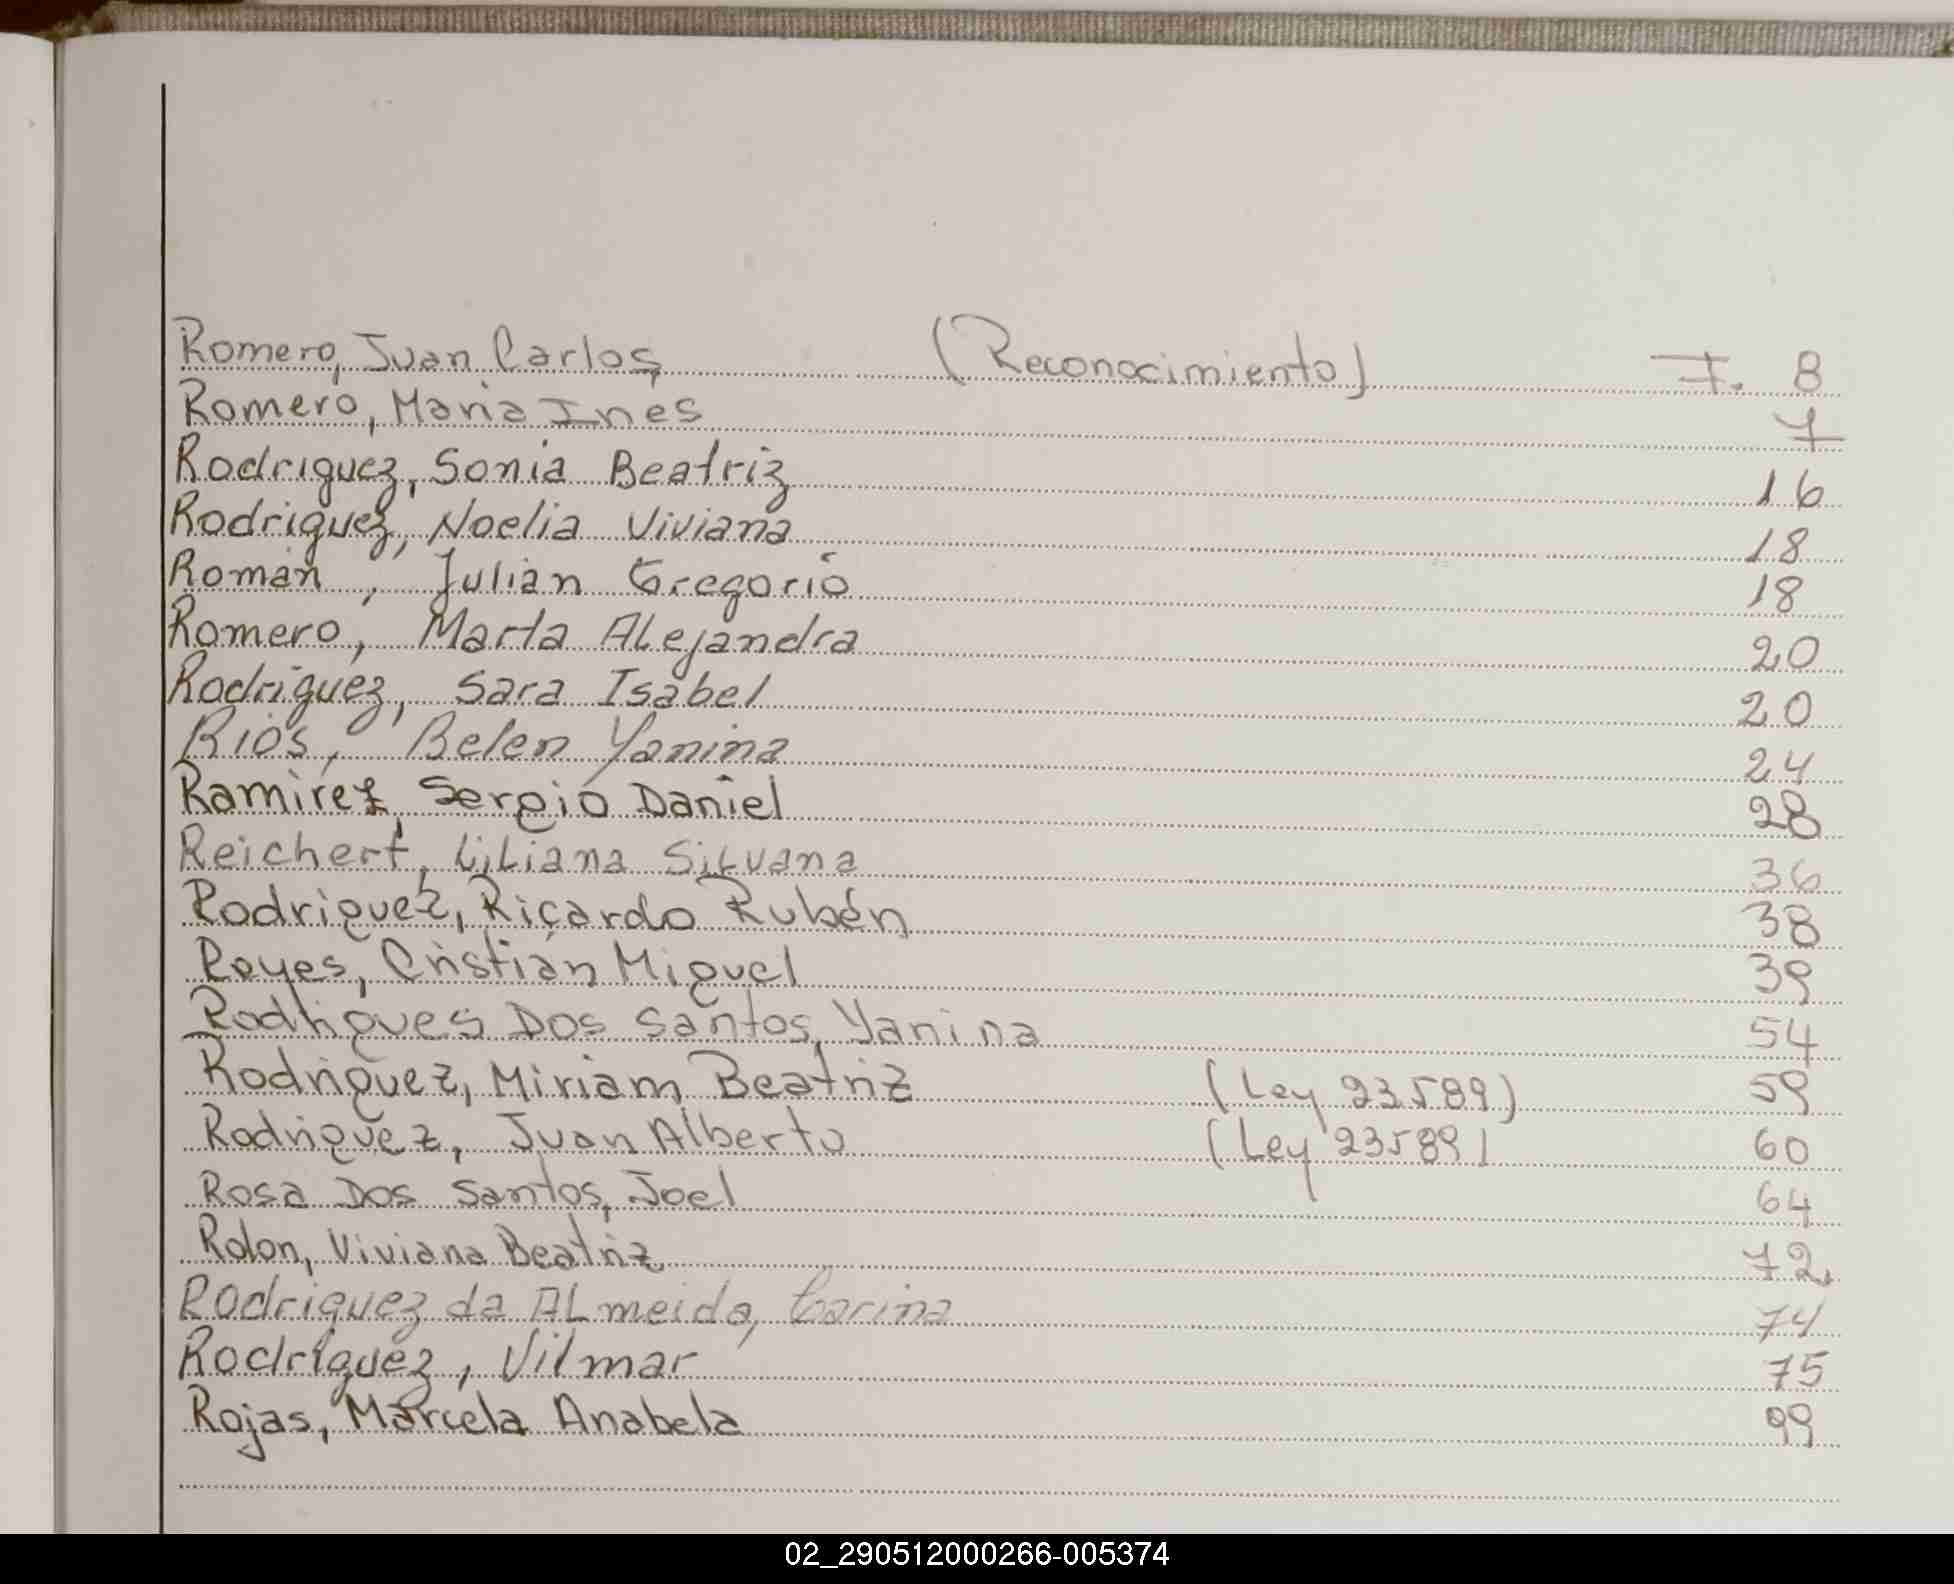 Romero, Juan Carlos (Reconocimiento) F. 8
Romero, Maria Ines 7
Rodriguez, Sonia Beatriz 16
Rodriguez, Noelia Viviana 18
Román, Julián Gregorio 18
Romero, Marta Alejandra 20
Rodriguez, Sara Isabel 20
Rios, Belen Yanina 24
Ramirez, Sergio Daniel 28
Reichert, Liliana Silvana 36
Rodriguez, Ricardo Rubén 38
Reyes, Cristián Miguel 39
Rodrigues Dos Santos, Yanina 54
Rodriguez, Miriam Beatriz (Ley 23589) 59
Rodriguez, Juan Alberto (Ley 23589) 60
Rosa Dos Santos, Joel 64
Rolon, Viviana Beatriz 72
Rodriguez da Almeida, Carina 74
Rodriguez, Vilmar 75
Rojas, Marcela Anabela 99
02_290512000266-005374